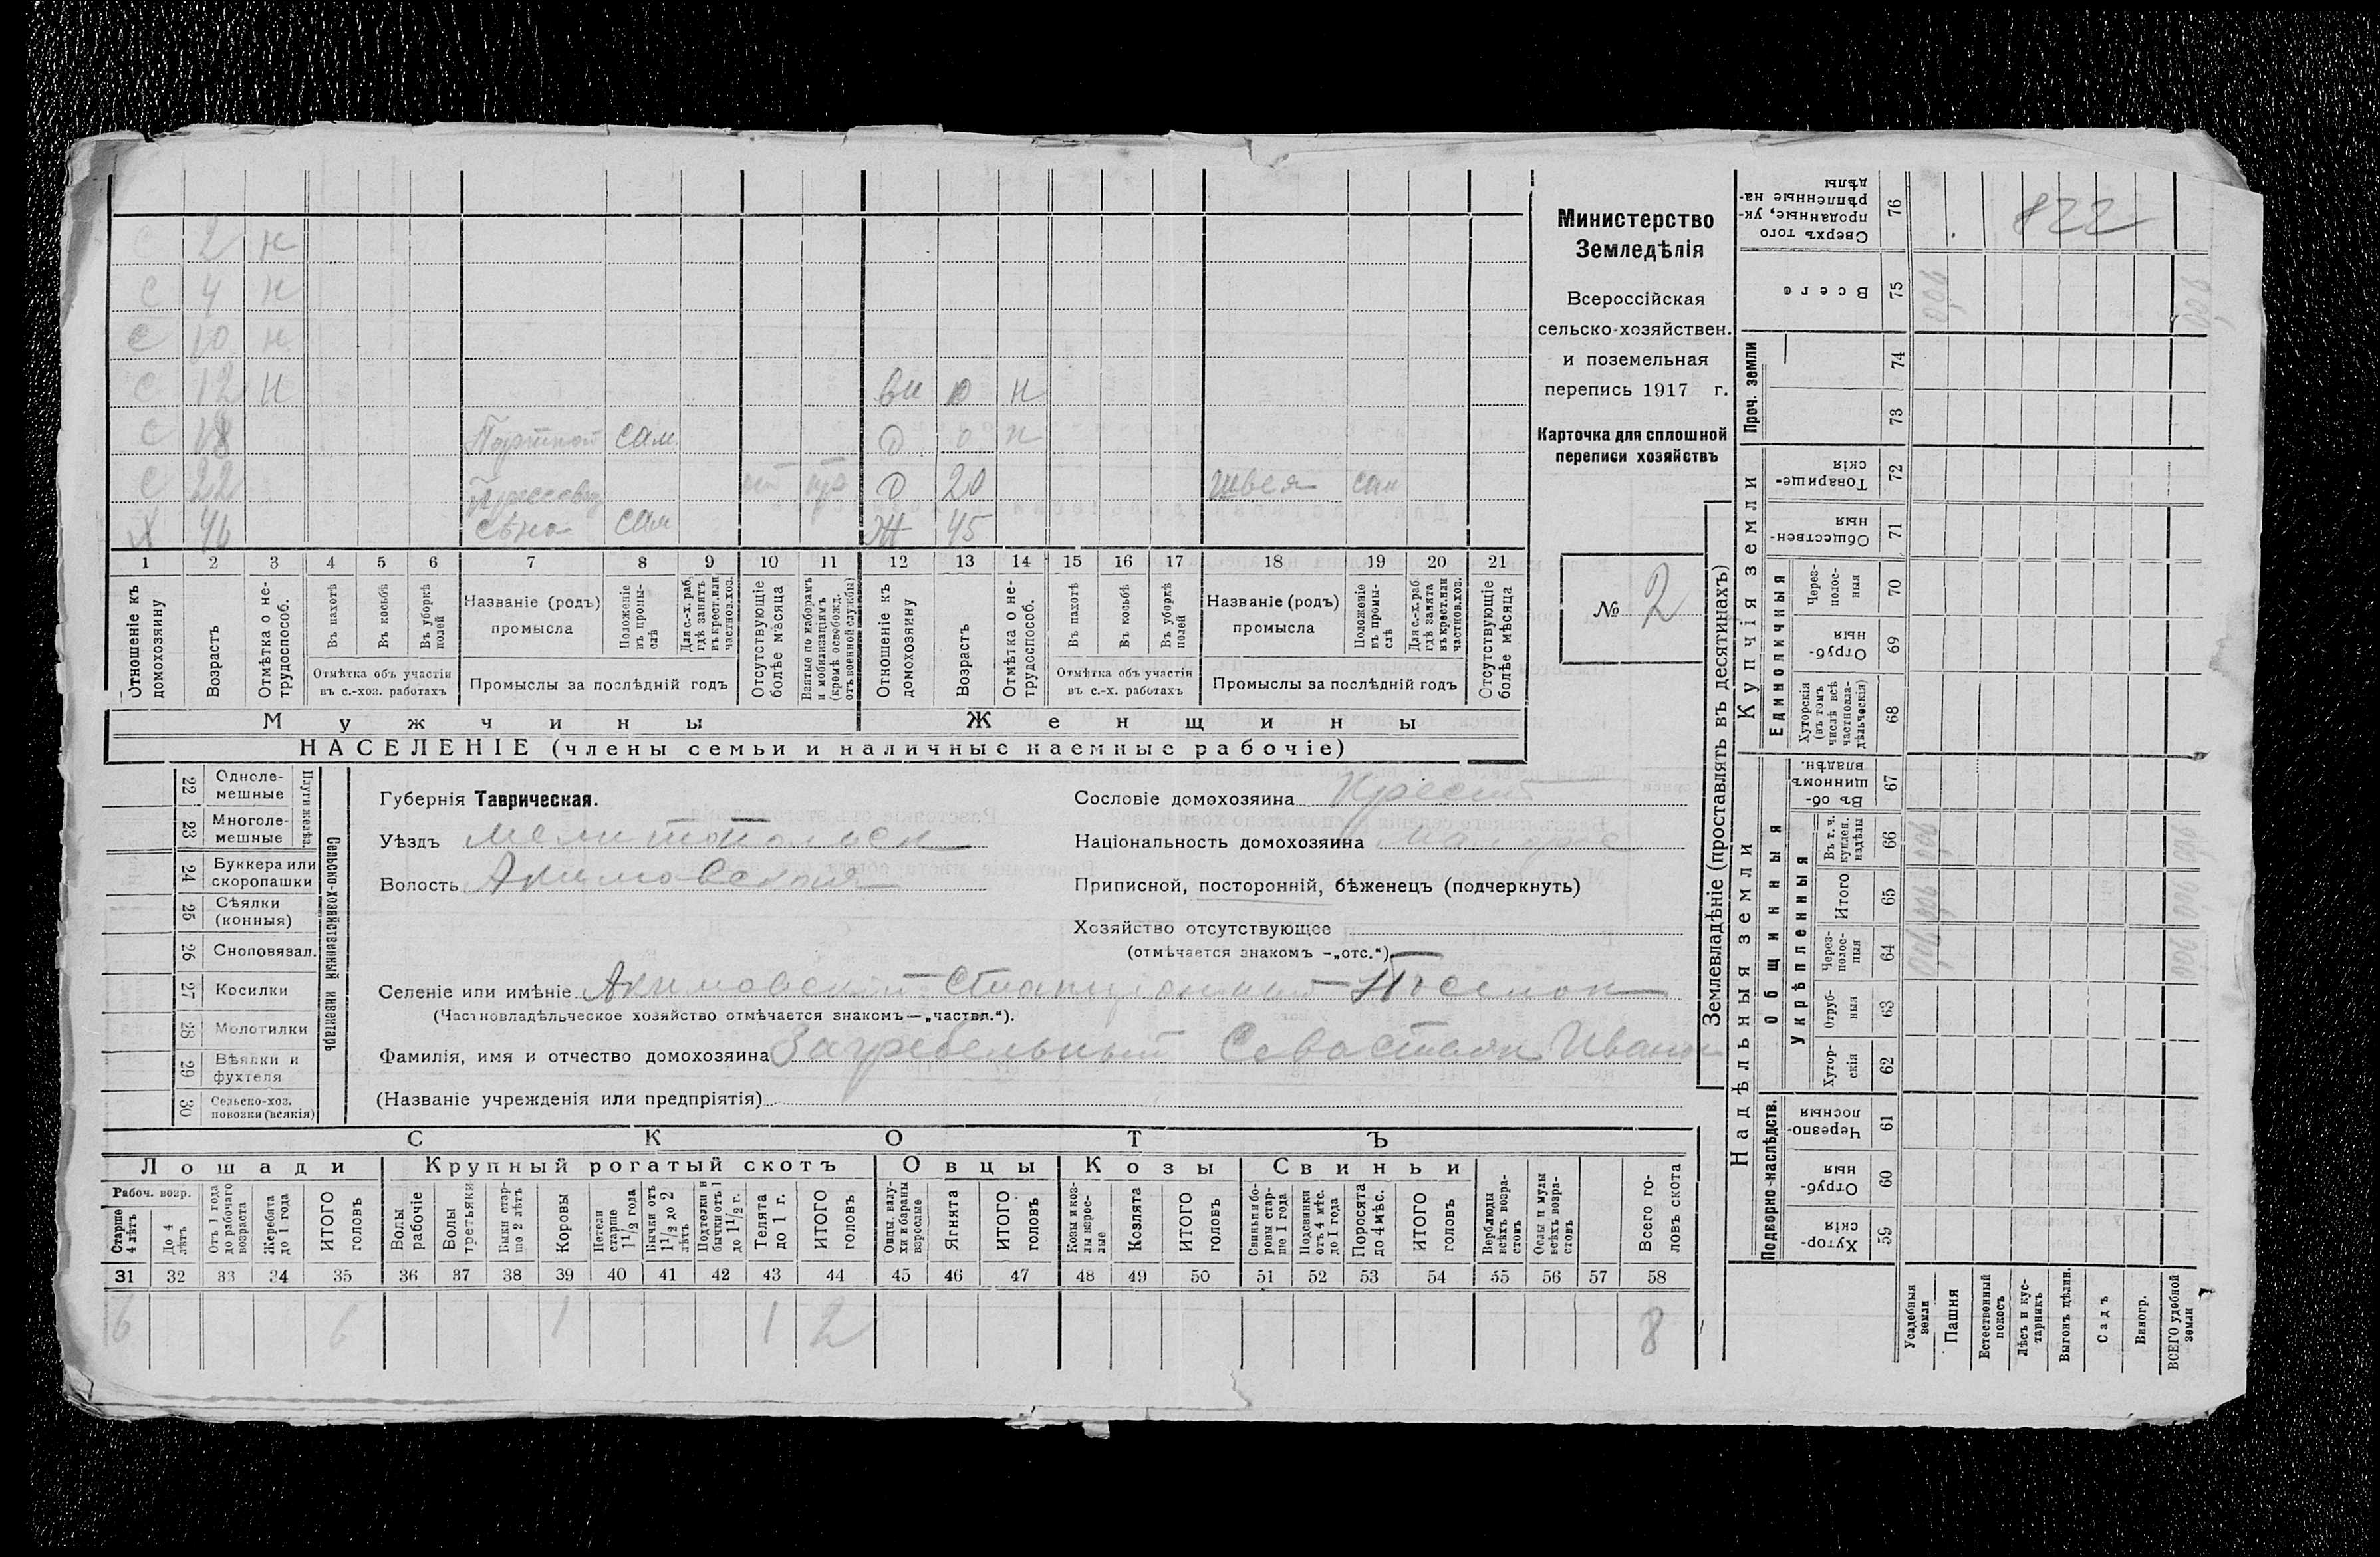 С 2 н
С 4 н
С 10 н
С 12 н вн 10 н
С 18 Портной сам. D 0 н
С 22 D 20 швея сам
Х 46 сѣна сам Ж 45
1 2 3 4 5 6 7 8 9 10 11 12 13 14 15 16 17 18 19 20 21
Отношеніе къ домохозяину
Возрастъ
Отмѣтка о не-трудоспособ.
Въ пахотѣ
Въ косьбѣ
Въ уборкѣ полей
Отмѣтка объ участіи въ с.-хоз. работахъ
Названіе (родъ) промысла
Положеніе въ промы-слѣ
Для с.-х. раб. гдѣ занятъ въ крест. или частнов. хоз.
Промыслы за послѣдній годъ
Отсутствующіе болѣе мѣсяца
Взятые по наборамъ и мобилизаціямъ (кромѣ освобожд. отъ военной службы)
Отношеніе къ домохозяину
Возрастъ
Отмѣтка о не-трудоспособ.
Въ пахотѣ
Въ косьбѣ
Въ уборкѣ полей
Отмѣтка объ участіи въ с.-х. работахъ
Названіе (родъ) промысла
Положеніе въ промы-слѣ
Для с.-х. раб. гдѣ занята въ крест. или частнов. хоз.
Промыслы за послѣдній годъ
Отсутствующіе болѣе мѣсяца
Мужчины Женщины
НАСЕЛЕНІЕ (члены семьи и наличные наемные рабочіе)
Министерство
Земледѣлія
Всероссійская
сельско-хозяйствен.
и поземельная
перепись 1917 г.
Карточка для сплошной
переписи хозяйствъ
№ 2
Сельско-хозяйственный инвентарь
Плуги желѣз.
22 Одноле-мешные
23 Многоле-мешные
24 Буккера или скоропашки
25 Сѣялки (конныя)
26 Сноповязал.
27 Косилки
28 Молотилки
29 Вѣялки и фухтеля
30 Сельско-хоз. повозки (всякія)
Губернія Таврическая.
Уѣздъ Мелитопольск
Волость Акимовская
Сословіе домохозяина Крест
Національность домохозяина малорос
Приписной, посторонній, бѣженецъ (подчеркнуть)
Хозяйство отсутствующее
(отмѣчается знакомъ -„отс.“)
Селеніе или имѣніе Акимовский Станционный Поселок
(Частновладѣльческое хозяйство отмѣчается знакомъ—„частвл.“).
Фамилія, имя и отчество домохозяина Загребельный Севастьян Иванов
(Названіе учрежденія или предпріятія)
СКОТЪ
Лошади Крупный рогатый скотъ Овцы Козы Свиньи
Рабоч. возр.
Старше 4 лѣтъ
До 4 лѣтъ
Отъ 1 года до рабочаго возраста
Жеребята до 1 года
ИТОГО головъ
Волы рабочіе
Волы третьяки
Быки стар-ше 2 лѣтъ
Коровы
Нетели старше 1 1/2 года
Бычки отъ 1 1/2 до 2 лѣтъ
Подтелки и бычки отъ 1 до 1 1/2 г.
Телята до 1 г.
ИТОГО головъ
Овцы, валу-хи и бараны взрослые
Ягнята
ИТОГО головъ
Козы и коз-лы взрос-лые
Козлята
ИТОГО головъ
Свиньи и бо-ровы стар-ше 1 года
Подсвинки отъ 4 мѣс. до 1 года
Поросята до 4 мѣс.
ИТОГО головъ
Верблюды всѣхъ возра-стовъ
Ослы и мулы всѣхъ возра-стовъ
Всего го-ловъ скота
31 32 33 34 35 36 37 38 39 40 41 42 43 44 45 46 47 48 49 50 51 52 53 54 55 56 57 58
6 6 1 1 2 8
Землевладѣніе (проставлять въ десятинахъ)
Купчія земли
Надѣльныя земли
Сверхъ того проданные, ук-рѣпленные на-дѣлы 76
822
Всего 75 0,06
Проч. земли
74
73
Товарище-скія 72
Обществен-ныя 71
Единоличныя
Через-полос-ныя 70
Отруб-ныя 69
Хуторскія (въ томъ числѣ всѣ частновла-дѣльческія) 68
Общинныя
Въ об-щинномъ владѣн. 67
Укрѣпленныя
Въ т. ч. куплен. надѣлы 66
Итого 65
Через-полос-ныя 64
Отруб-ныя 63
Хутор-скія 62
Подворно-наслѣдств.
Черезпо-лосныя 61
Отруб-ныя 60
Хутор-скія 59
Усадебныя земли
Пашня
Естественный покосъ
Лѣсъ и кус-тарникъ
Выгонъ дѣлин.
Садъ
Виногр.
ВСЕГО удобной земли